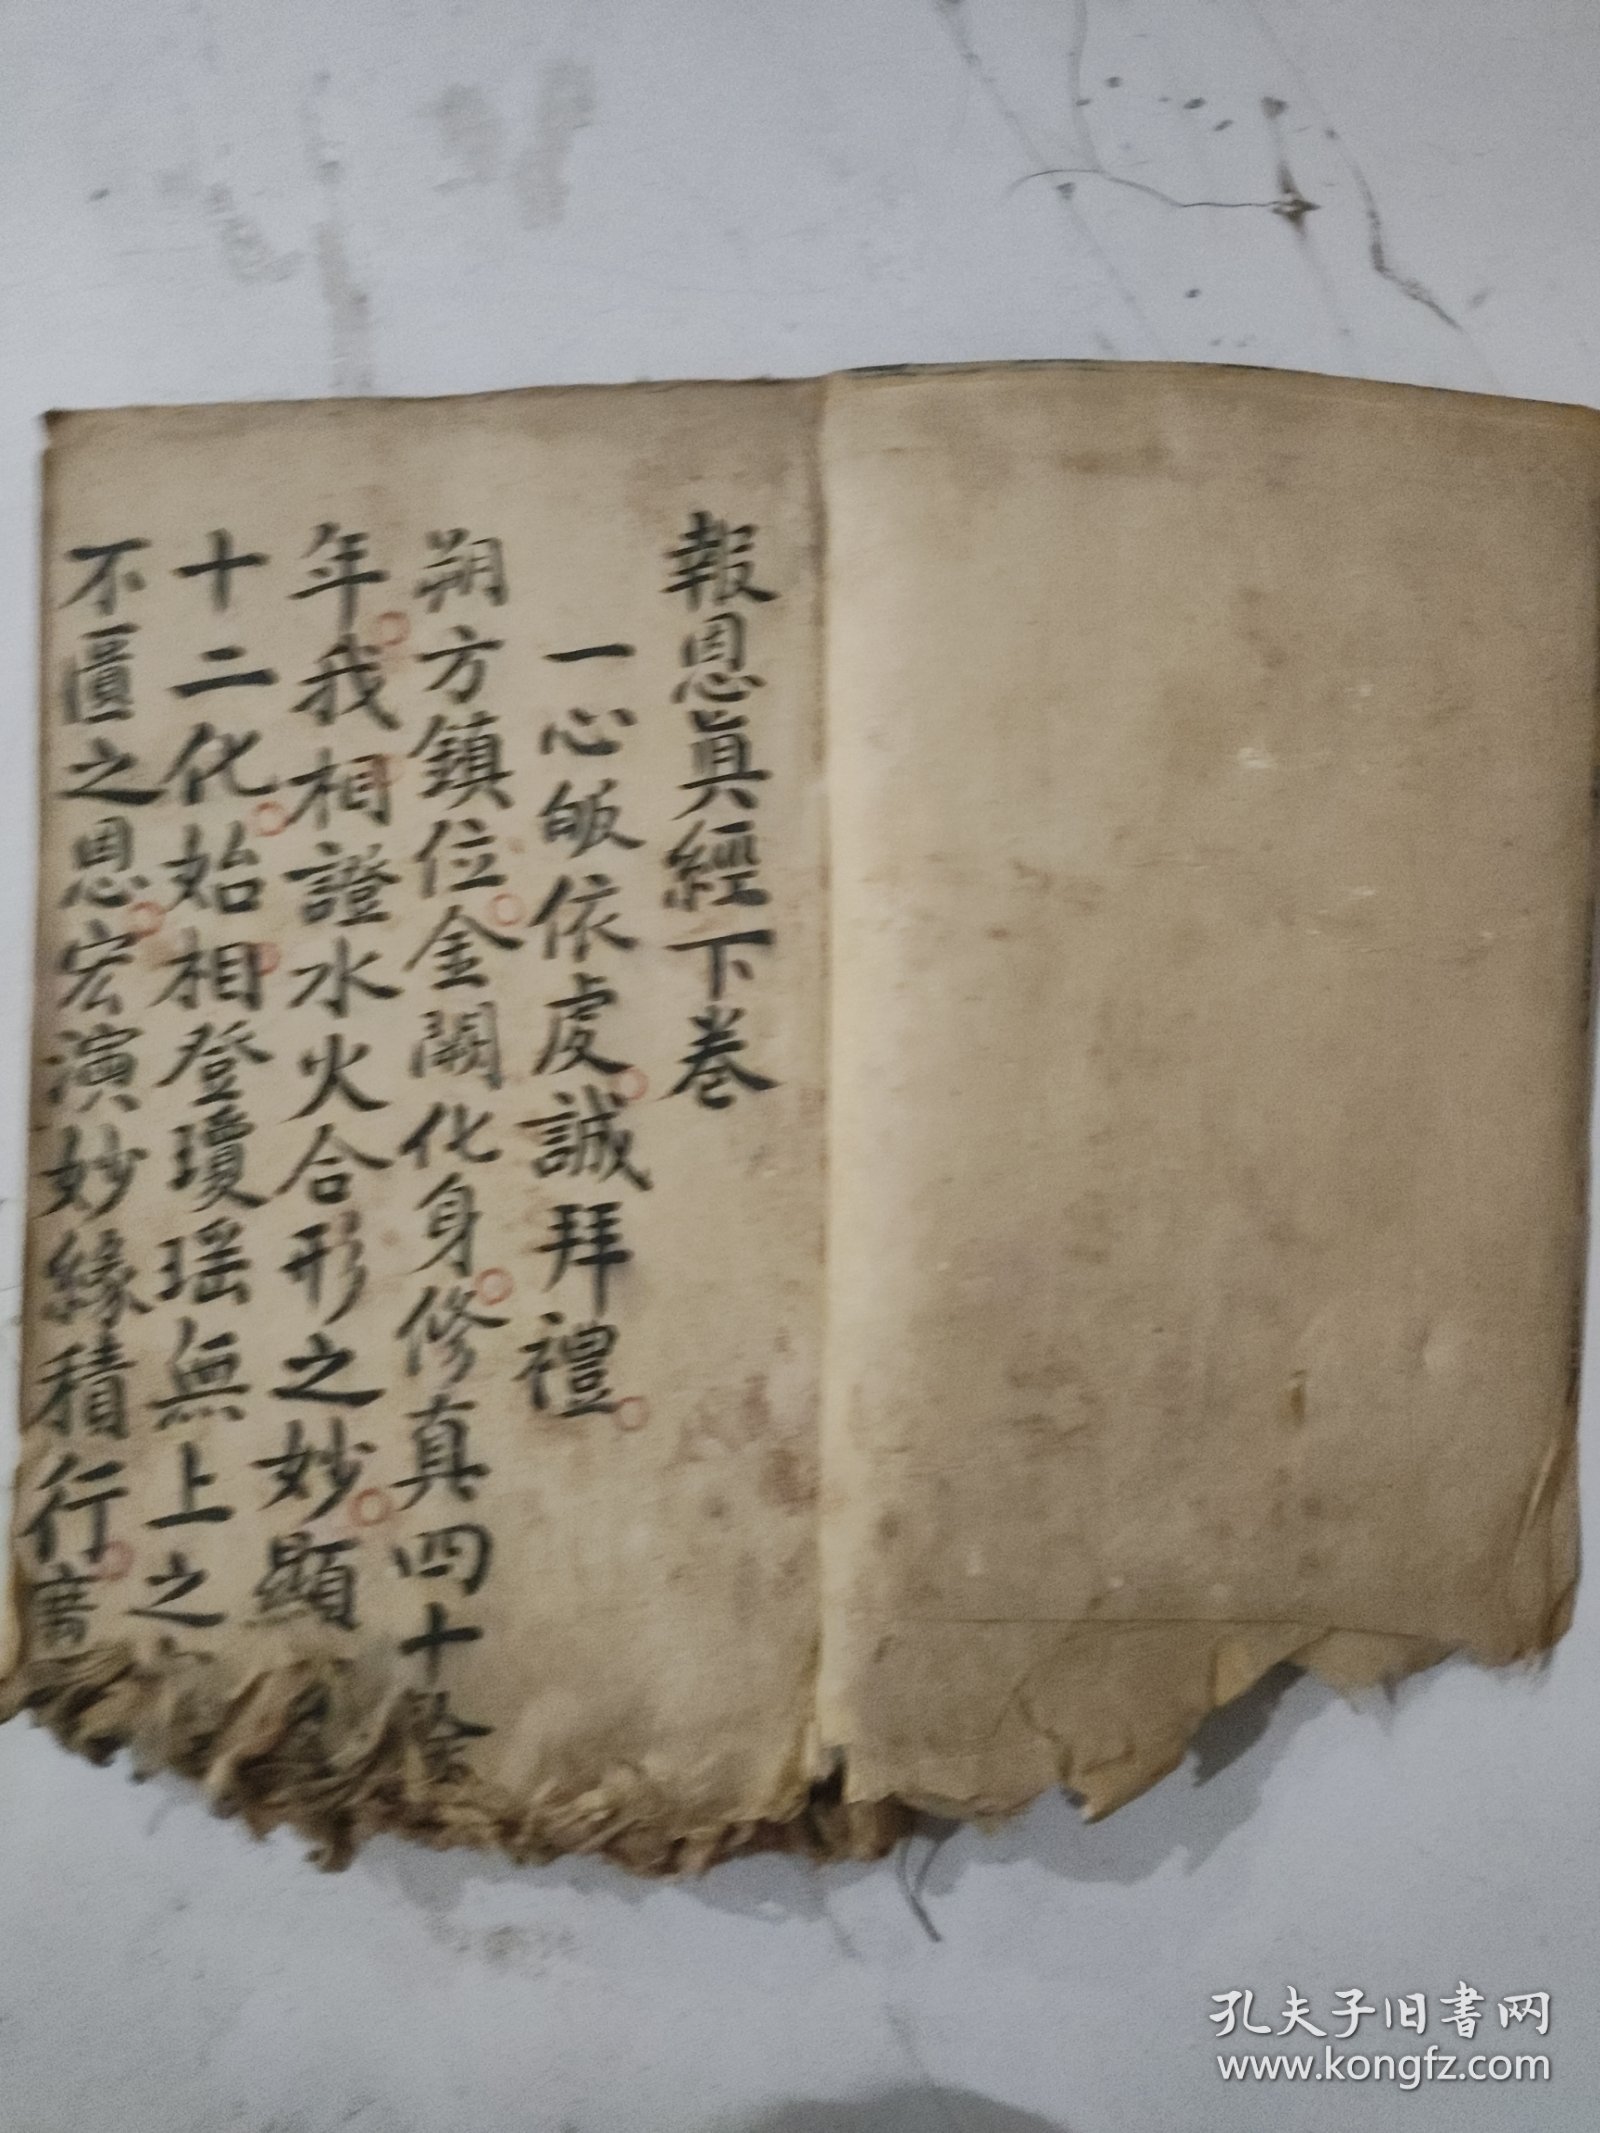 報恩眞經下卷
一心皈依處誠拜禮
朔方鎮位金闕化身修真四十餘
年我相證水火合形之妙顯
十二化始相登瓊瑶無上之
不匱之恩宏演妙緣積行廣
孔夫子旧書网
www.kongfz.com